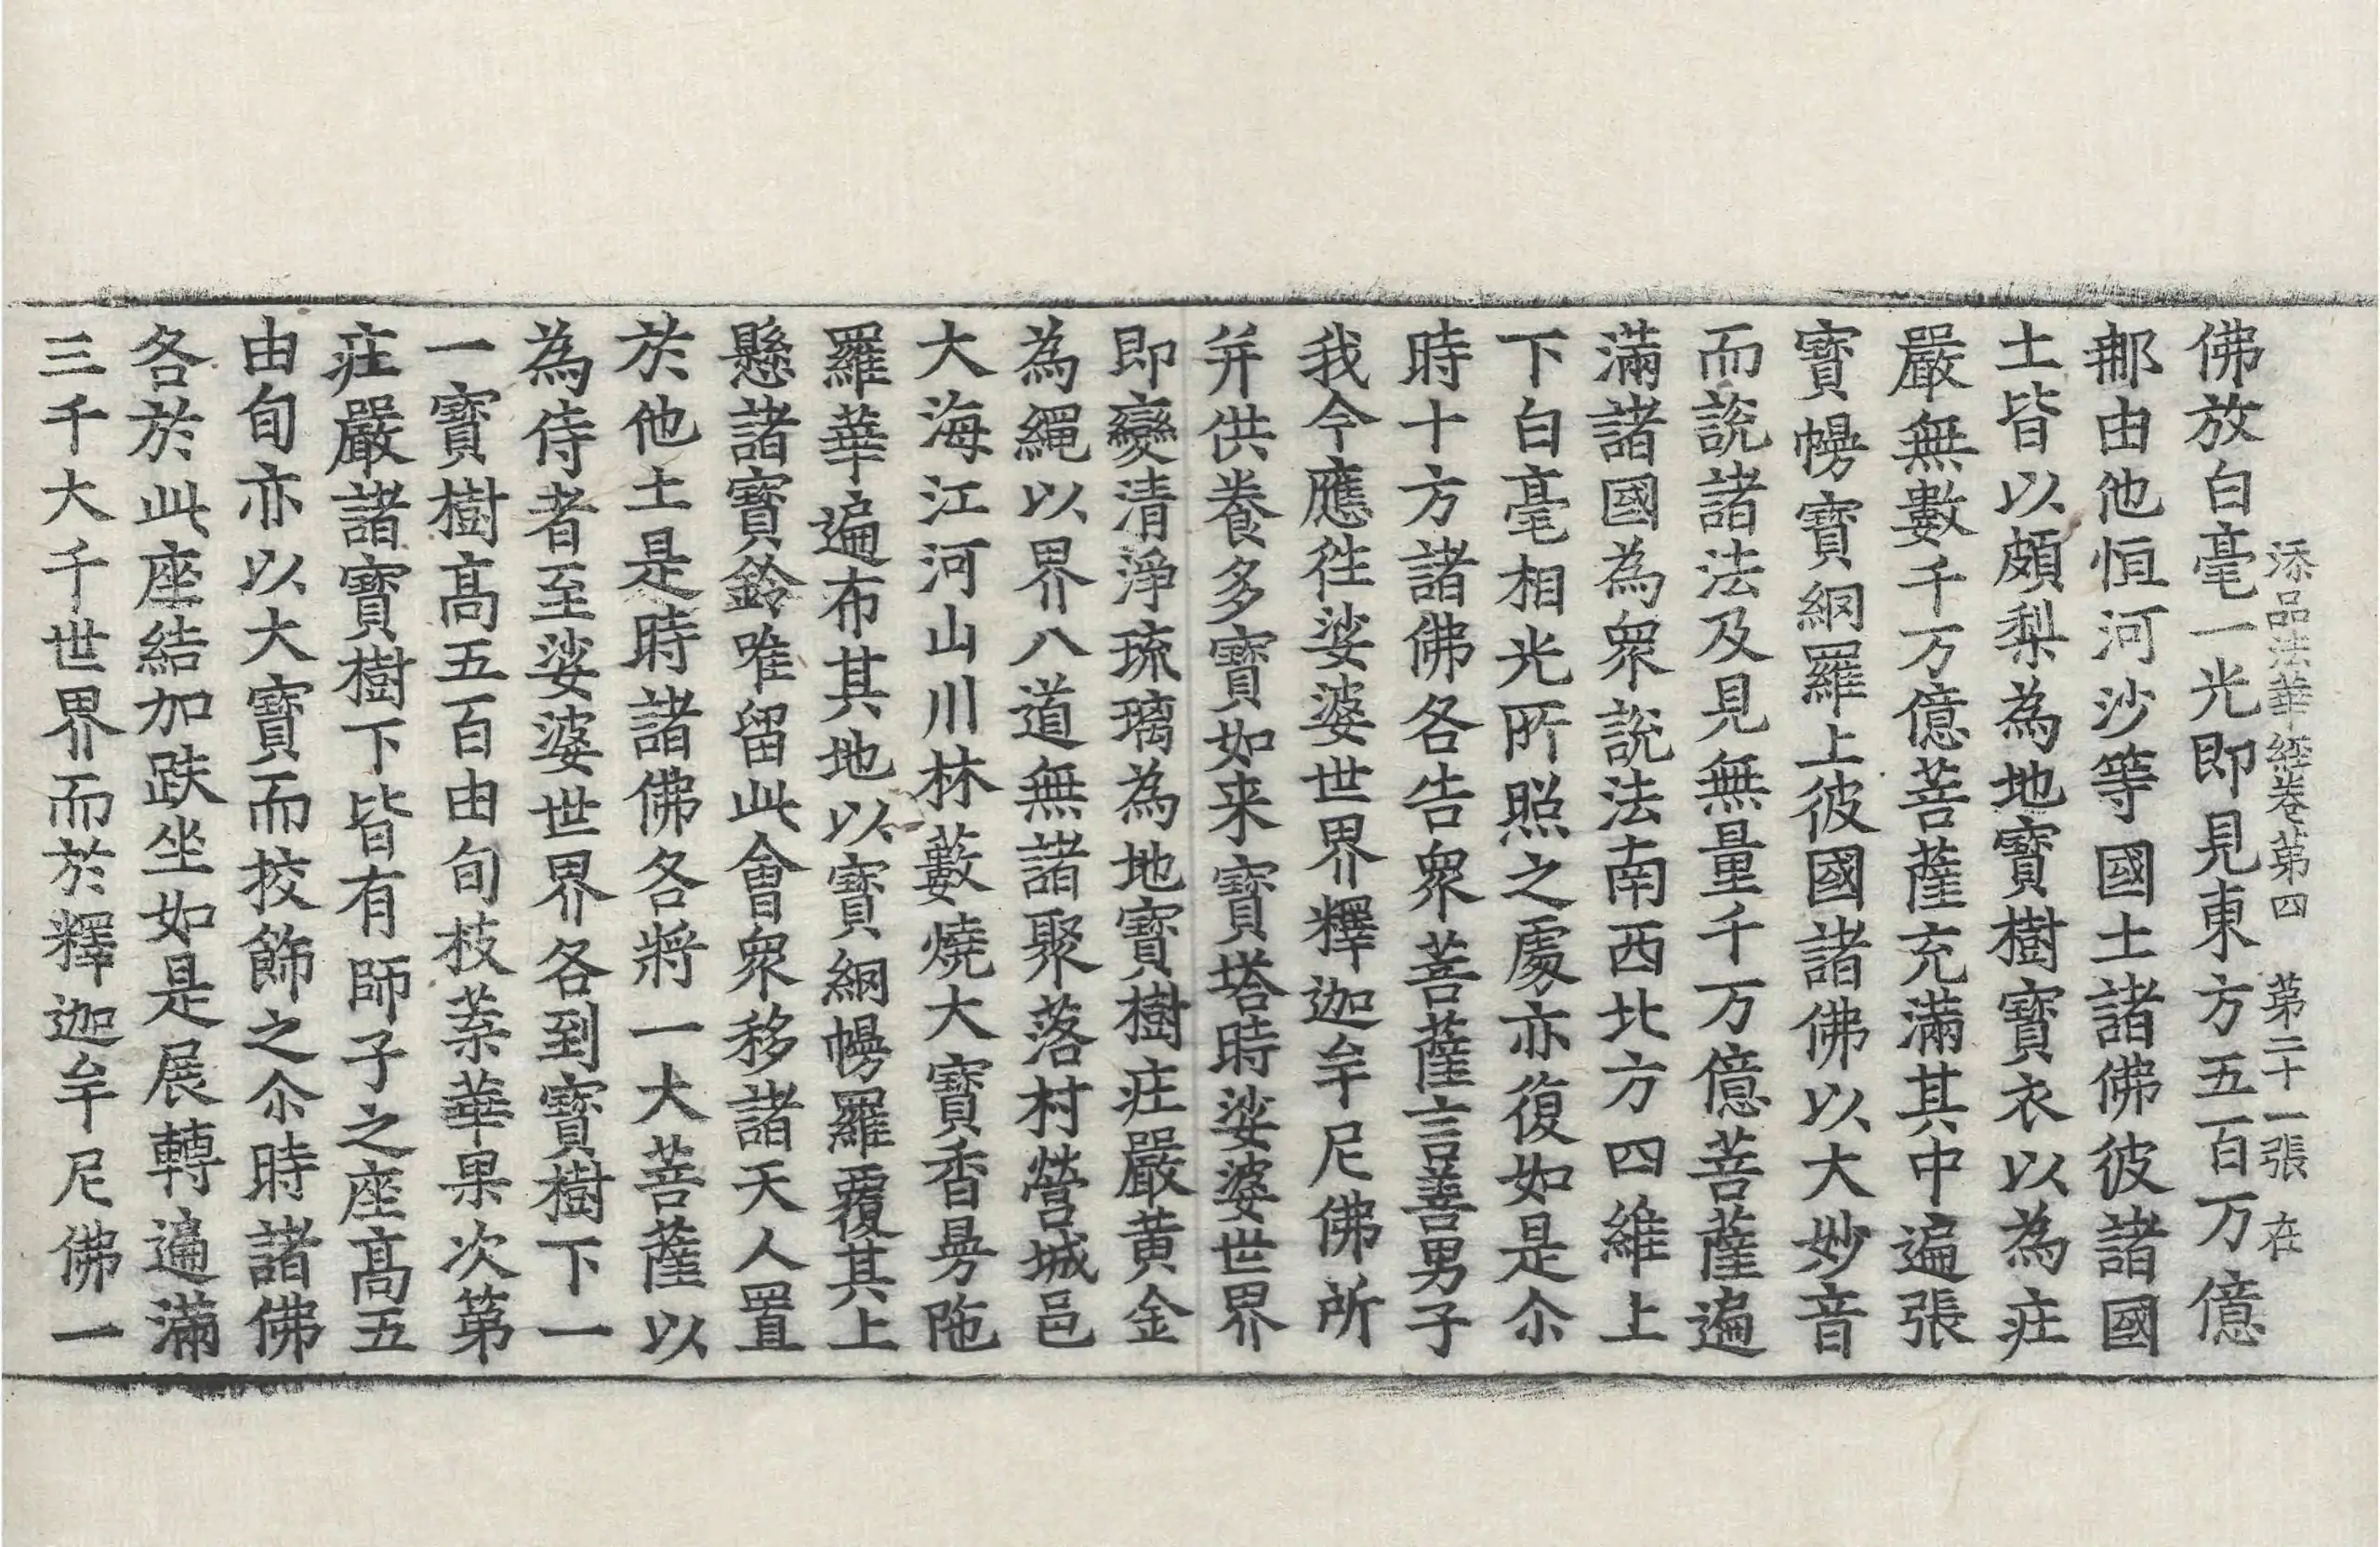 添品法華經卷第四 第二十一張 在
佛放白毫一光即見東方五百万億
那由他恒河沙等國土諸佛彼諸國
土皆以頗梨為地寶樹寶衣以為庄
嚴無數千万億菩薩充滿其中遍張
寶幔寶網羅上彼國諸佛以大妙音
而說諸法及見無量千万億菩薩遍
滿諸國為衆說法南西北方四維上
下白毫相光所照之處亦復如是尒
時十方諸佛各告衆菩薩言善男子
我今應往娑婆世界釋迦牟尼佛所
并供養多寶如来寶塔時娑婆世界
即變清淨琉璃為地寶樹庄嚴黄金
為繩以界八道無諸聚落村營城邑
大海江河山川林藪燒大寶香曼陁
羅華遍布其地以寶網幔羅覆其上
懸諸寶鈴唯留此會衆移諸天人置
於他土是時諸佛各將一大菩薩以
為侍者至娑婆世界各到寶樹下一
一寶樹高五百由旬枝葉華果次第
庄嚴諸寶樹下皆有師子之座高五
由旬亦以大寶而挍飾之尒時諸佛
各於此座結加趺坐如是展轉遍滿
三千大千世界而於釋迦牟尼佛一